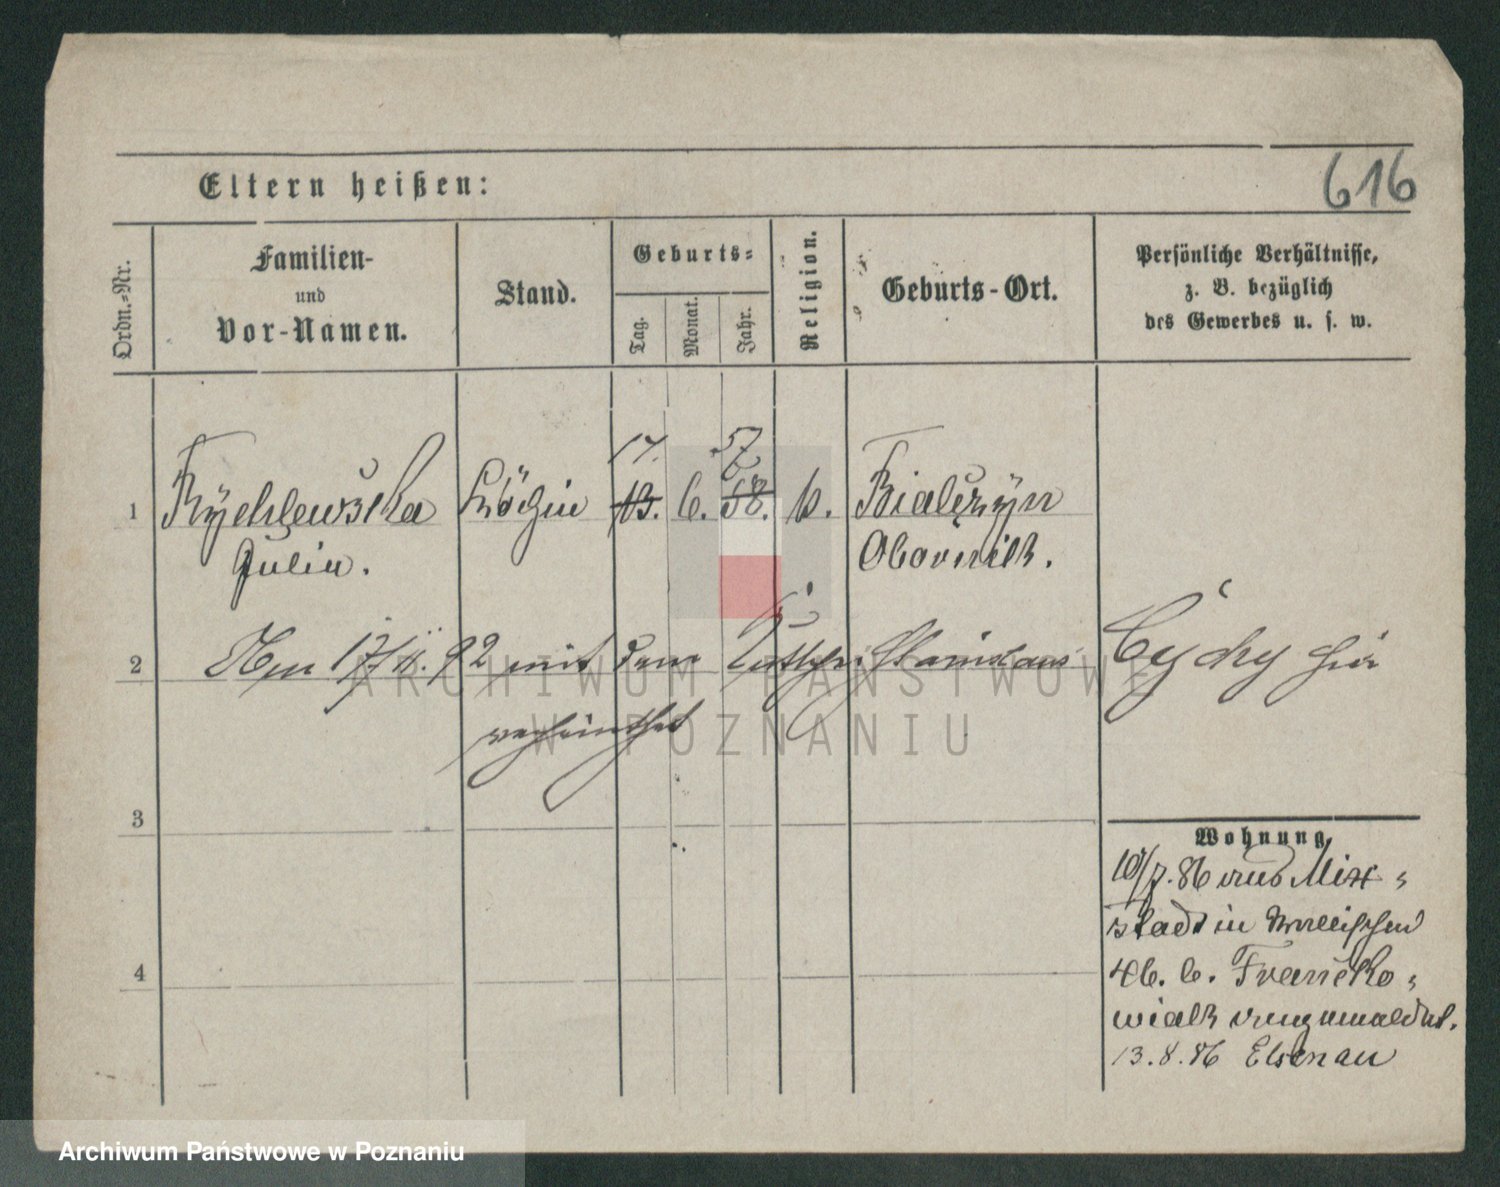 616
Eltern heißen:
Ordn.-Nr.
Familien-
und
Vor-Namen.
Stand.
Geburts-
Tag.
Monat.
Jahr.
Religion.
Geburts-Ort.
Persönliche Verhältnisse,
z. B. bezüglich
des Gewerbes u. s. w.
17. 57
1 Rychlewska Köchin 13. 6. 58. k. Bialczyn
Julia. Obornik.
2 Am 17/11. 92 mit dem Stanislaus Cychy hier
verheirathet
ARCHIWUM PAŃSTWOWE
W POZNANIU
3
Wohnung
10/7. 86 aus Mix-
stadt in
46. b. Franko-
wiak angemeldet.
4
13. 8. 86 Elsenau
Archiwum Państwowe w Poznaniu